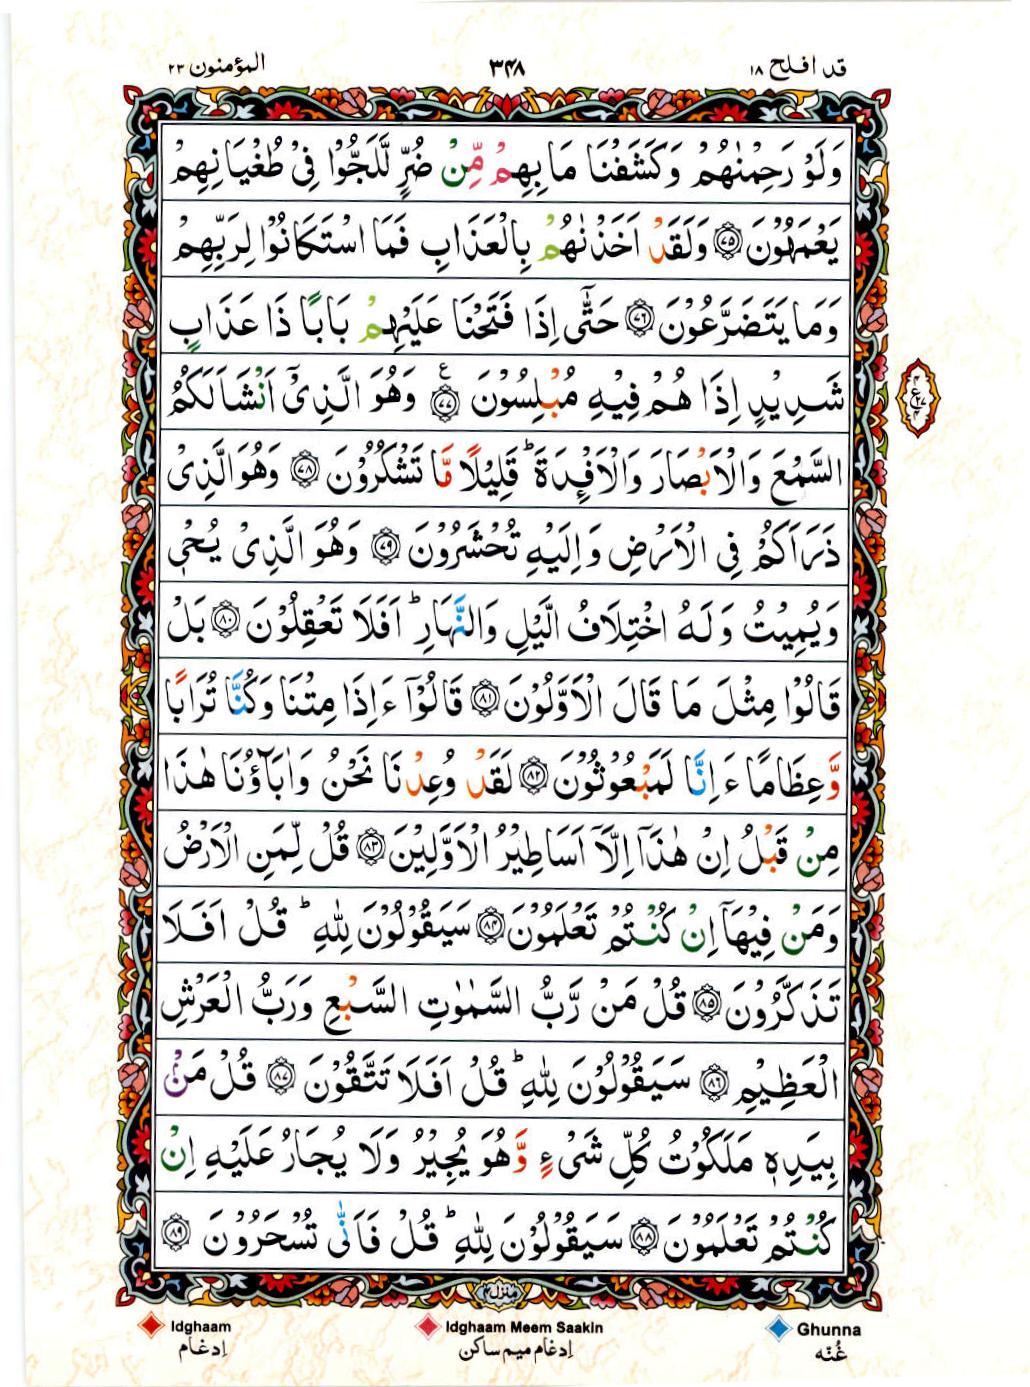 قد افلح ۱۸
۳۴۸
المؤمنون ۲۳
وَلَوْ رَحِمْنٰهُمْ وَكَشَفْنَا مَا بِهِمْ مِّنْ ضُرٍّ لَّلَجُّوْا فِىْ طُغْيَانِهِمْ
يَعْمَهُوْنَ ﴿۷۵﴾ وَلَقَدْ اَخَذْنٰهُمْ بِالْعَذَابِ فَمَا اسْتَكَانُوْا لِرَبِّهِمْ
وَمَا يَتَضَرَّعُوْنَ ﴿۷۶﴾ حَتّٰٓى اِذَا فَتَحْنَا عَلَيْهِمْ بَابًا ذَا عَذَابٍ
شَدِيْدٍ اِذَا هُمْ فِيْهِ مُبْلِسُوْنَ ﴿۷۷﴾ ع وَهُوَ الَّذِىْٓ اَنْشَاَ لَكُمُ
السَّمْعَ وَالْاَبْصَارَ وَالْاَفْـِٕدَةَ ؕ قَلِيْلًا مَّا تَشْكُرُوْنَ ﴿۷۸﴾ وَهُوَ الَّذِىْ
ذَرَاَكُمْ فِى الْاَرْضِ وَاِلَيْهِ تُحْشَرُوْنَ ﴿۷۹﴾ وَهُوَ الَّذِىْ يُحْىٖ
وَيُمِيْتُ وَلَهُ اخْتِلَافُ الَّيْلِ وَالنَّهَارِ ؕ اَفَلَا تَعْقِلُوْنَ ﴿۸۰﴾ بَلْ
قَالُوْا مِثْلَ مَا قَالَ الْاَوَّلُوْنَ ﴿۸۱﴾ قَالُوْٓا ءَاِذَا مِتْنَا وَكُنَّا تُرَابًا
وَّعِظَامًا ءَاِنَّا لَمَبْعُوْثُوْنَ ﴿۸۲﴾ لَقَدْ وُعِدْنَا نَحْنُ وَاٰبَآؤُنَا هٰذَا
مِنْ قَبْلُ اِنْ هٰذَآ اِلَّآ اَسَاطِيْرُ الْاَوَّلِيْنَ ﴿۸۳﴾ قُلْ لِّمَنِ الْاَرْضُ
وَمَنْ فِيْهَآ اِنْ كُنْتُمْ تَعْلَمُوْنَ ﴿۸۴﴾ سَيَقُوْلُوْنَ لِلّٰهِ ؕ قُلْ اَفَلَا
تَذَكَّرُوْنَ ﴿۸۵﴾ قُلْ مَنْ رَّبُّ السَّمٰوٰتِ السَّبْعِ وَرَبُّ الْعَرْشِ
الْعَظِيْمِ ﴿۸۶﴾ سَيَقُوْلُوْنَ لِلّٰهِ ؕ قُلْ اَفَلَا تَتَّقُوْنَ ﴿۸۷﴾ قُلْ مَنْۢ
بِيَدِهٖ مَلَكُوْتُ كُلِّ شَىْءٍ وَّهُوَ يُجِيْرُ وَلَا يُجَارُ عَلَيْهِ اِنْ
كُنْتُمْ تَعْلَمُوْنَ ﴿۸۸﴾ سَيَقُوْلُوْنَ لِلّٰهِ ؕ قُلْ فَاَنّٰى تُسْحَرُوْنَ ﴿۸۹﴾
منزل ۴
Idghaam
اِدغَام
Idghaam Meem Saakin
اِدغَام ميم ساكن
Ghunna
غُنّه